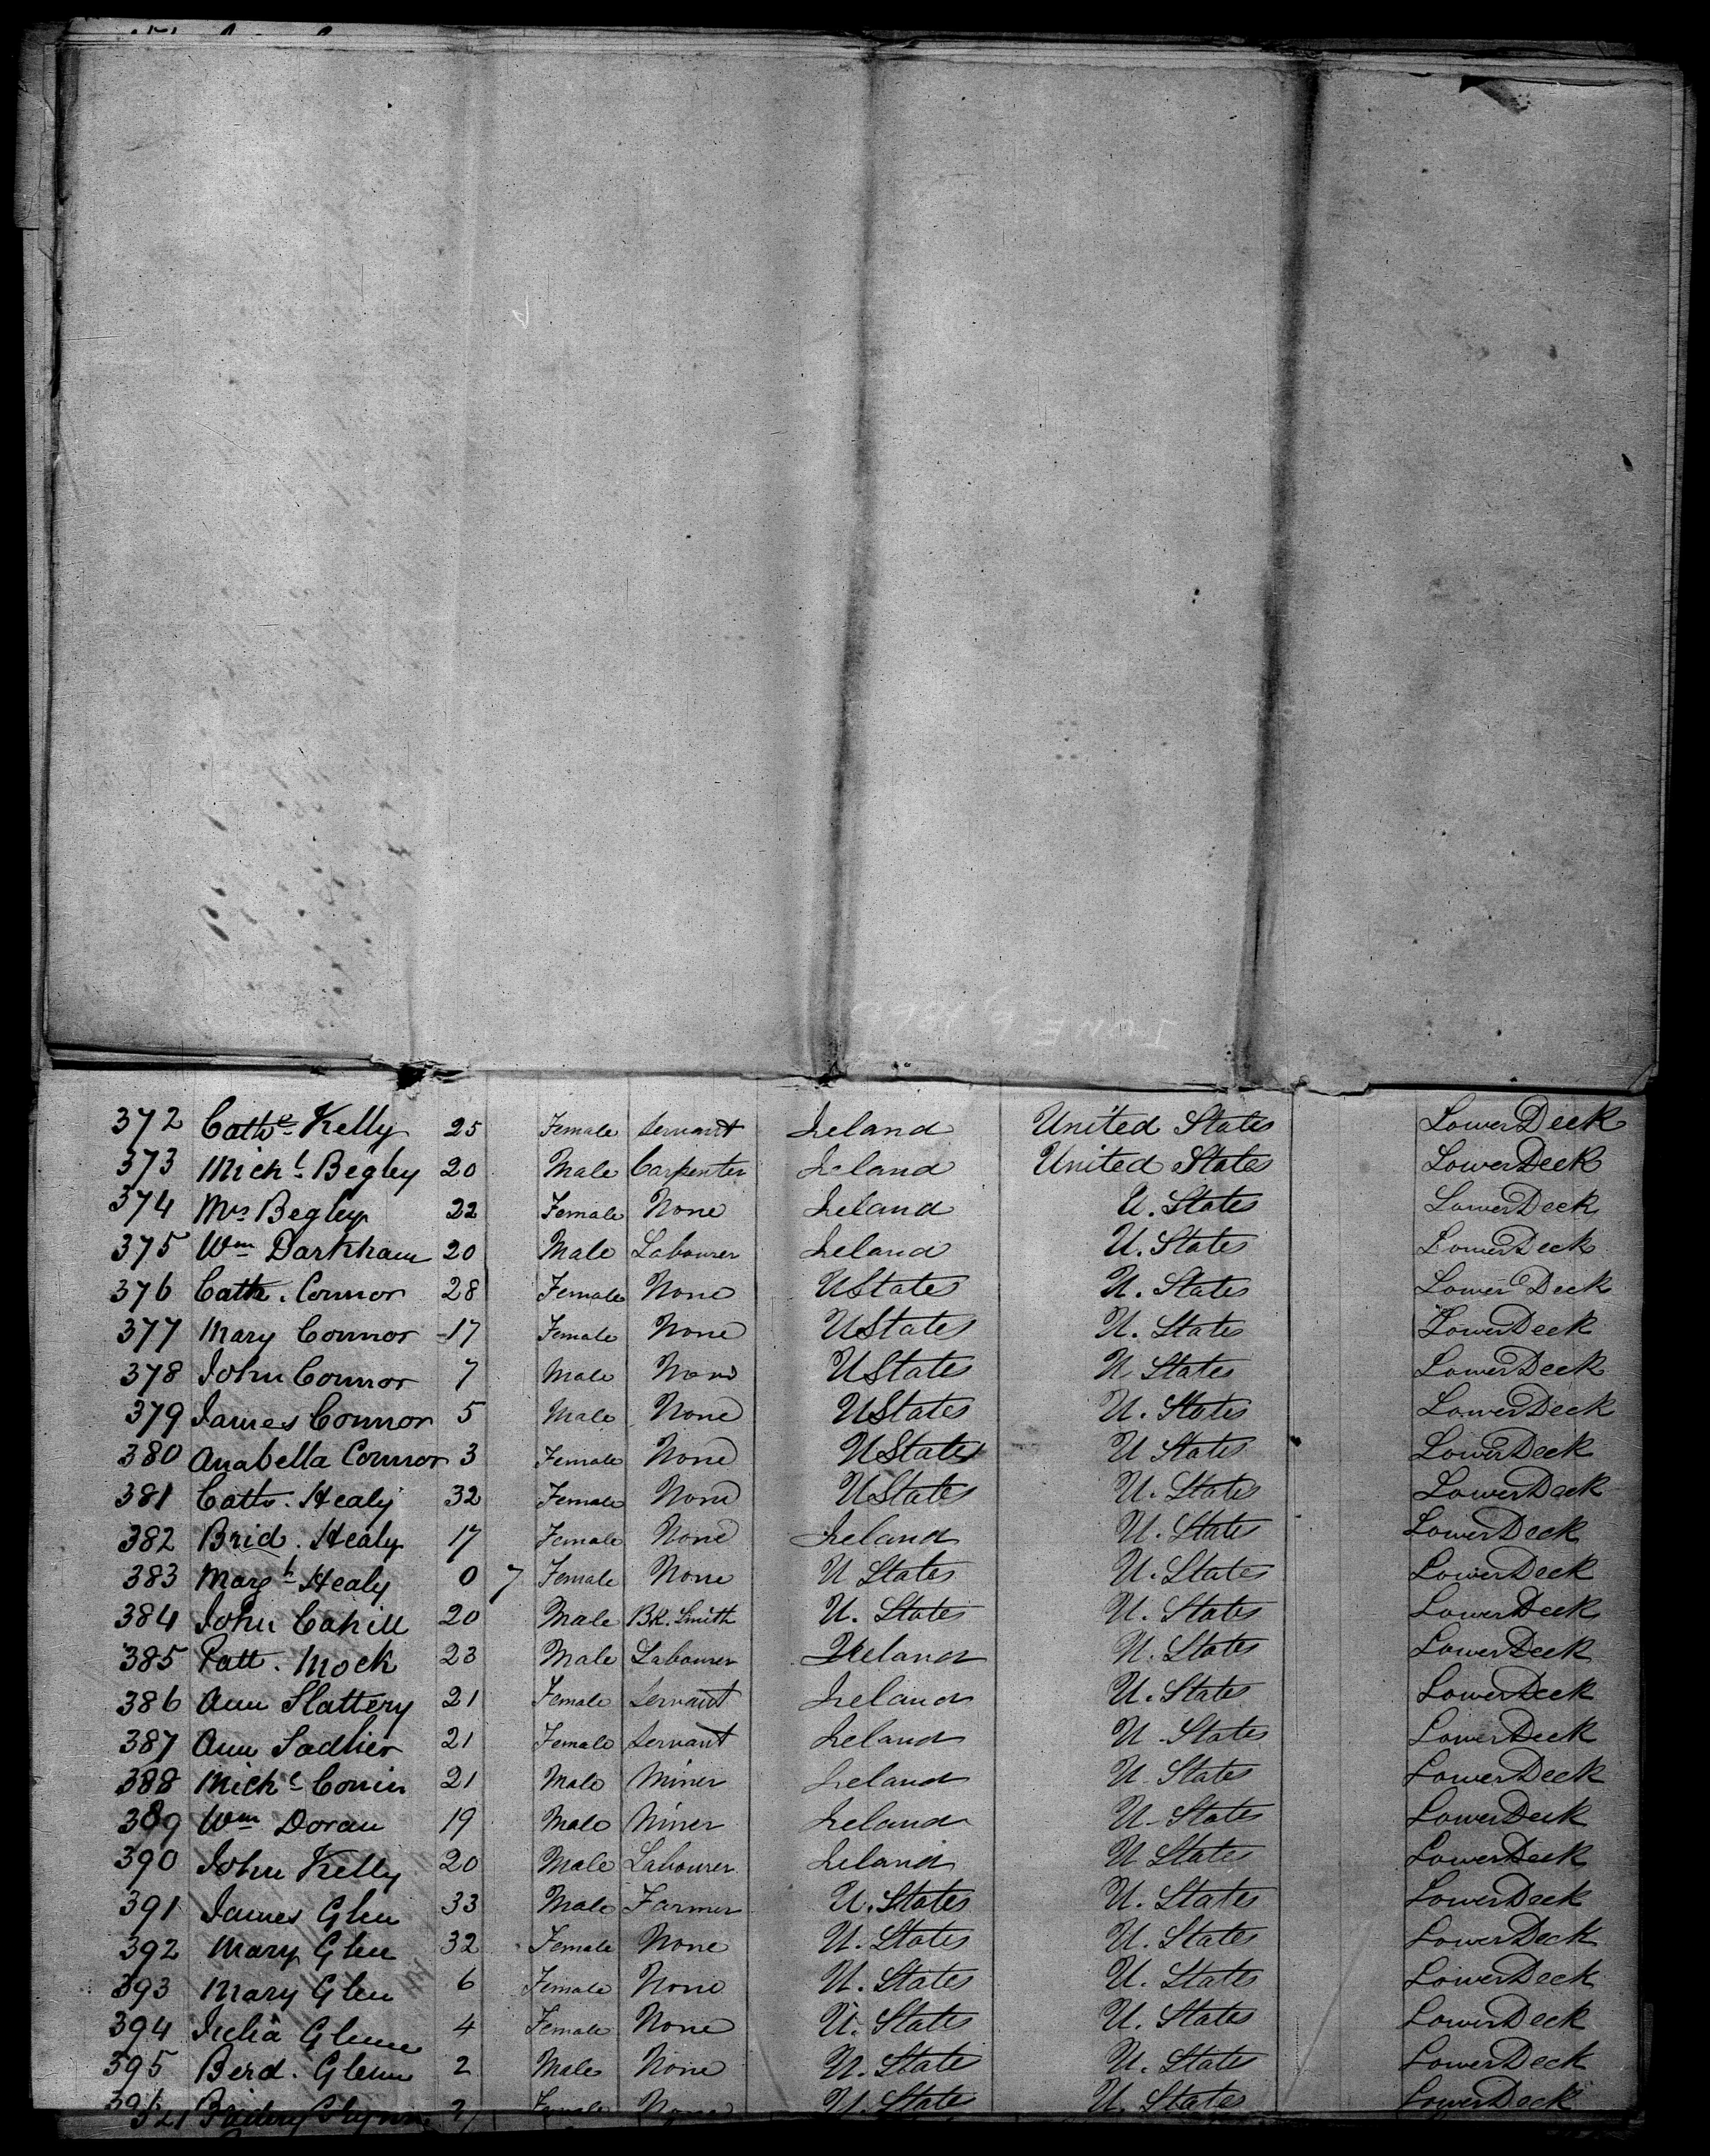 JUNE 6, 186
372 Cathe Kelly 25 Female Servant Ireland United States Lower Deck
373 Michl Begley 20 Male Carpenter Ireland United States Lower Deck
374 Mrs Begley 22 Female None Ireland U. States Lower Deck
375 Wm Darkham 20 Male Labourer Ireland U. States Lower Deck
376 Cath. Connor 28 Female None U States U. States Lower Deck
377 Mary Connor 17 Female None U States U. States Lower Deck
378 John Connor 7 Male None U States U States Lower Deck
379 James Connor 5 Male None U States U. States Lower Deck
380 Anabella Connor 3 Female None U States U States Lower Deck
381 Cath. Healy 32 Female None U States U. States Lower Deck
382 Brid. Healy 17 Female None Ireland U. States Lower Deck
383 Margt Healy 0 7 Female None U States U. States Lower Deck
384 John Cahill 20 Male Bk. Smith U. States U. States Lower Deck
385 Patt. Mock 23 Male Labourer Ireland U. States Lower Deck
386 Ann Slattery 21 Female Servant Ireland U. States Lower Deck
387 Ann Sadlier 21 Female Servant Ireland U. States Lower Deck
388 Michl 21 Male Miner Ireland U. States Lower Deck
389 Wm Doran 19 Male Miner Ireland U. States Lower Deck
390 John Kelly 20 Male Labourer Ireland U States Lower Deck
391 James Glen 33 Male Farmer U. States U. States Lower Deck
392 Mary Glen 32 Female None U. States U. States Lower Deck
393 Mary Glen 6 Female None U. States U. States Lower Deck
394 Julia Glenn 4 Female None U. States U. States Lower Deck
395 Berd. Glenn 2 Male None U. States U. States Lower Deck
Female None U. States U. States Lower Deck